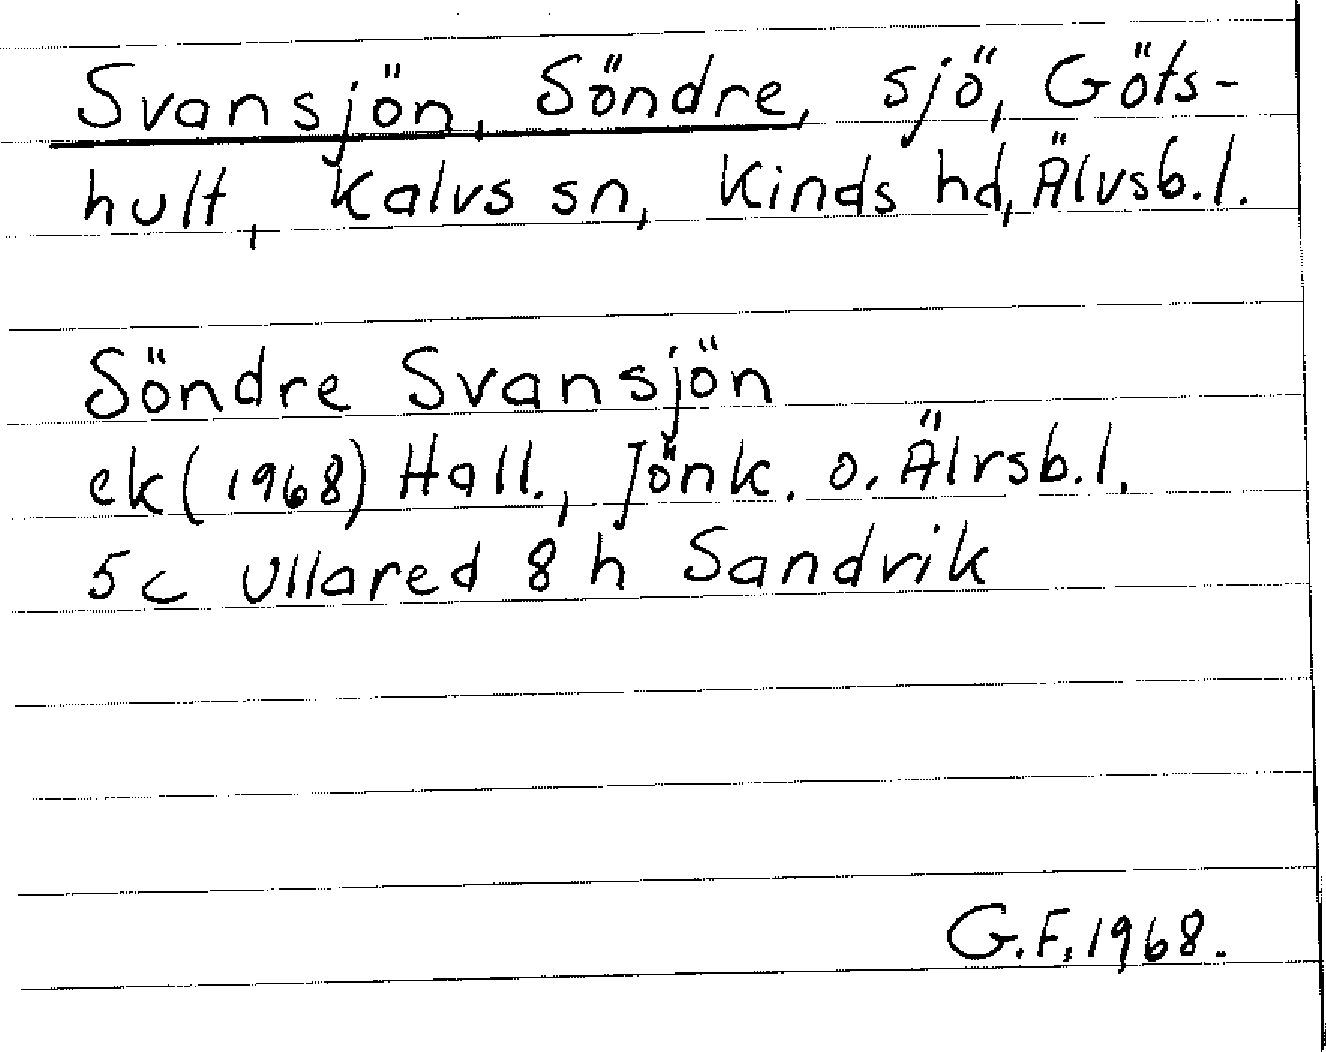 Svansjön, Söndre, sjö, Göts-
hult, Kalvs sn, Kinds hd, Älvsb.l.
Söndre Svansjön
ek (1968) Hall., Jönk. o. Älvsb.l.
5c Ullared 8h Sandvik
G.F. 1968.